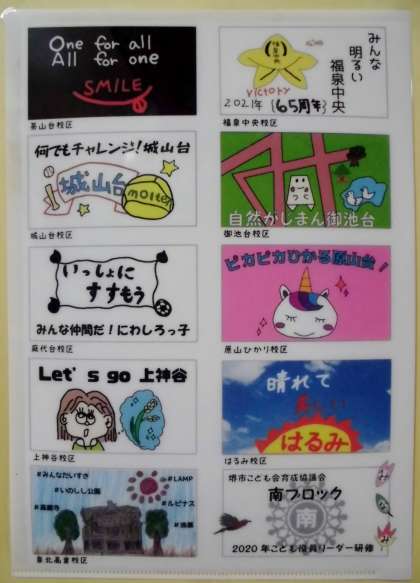 One for all
All for one
SMILE
美山台校区
みんな
明るい
福泉中央
victory
2021年 65周年
福泉中央校区
何でもチャレンジ!城山台
城山台
molten
城山台校区
自然がじまん御池台
御池台校区
いっしょに
すすもう
みんな仲間だ!にわしろっ子
庭代台校区
ピカピカひかる原山台!
原山ひかり校区
Let's go 上神谷
上神谷校区
晴れて
楽しい
はるみ
はるみ校区
#みんなだいすき
#いのしし公園
#LAMP
#ルピナス
泉北高倉校区
堺市こども会育成協議会
南ブロック
南
2020年こども役員リーダー研修